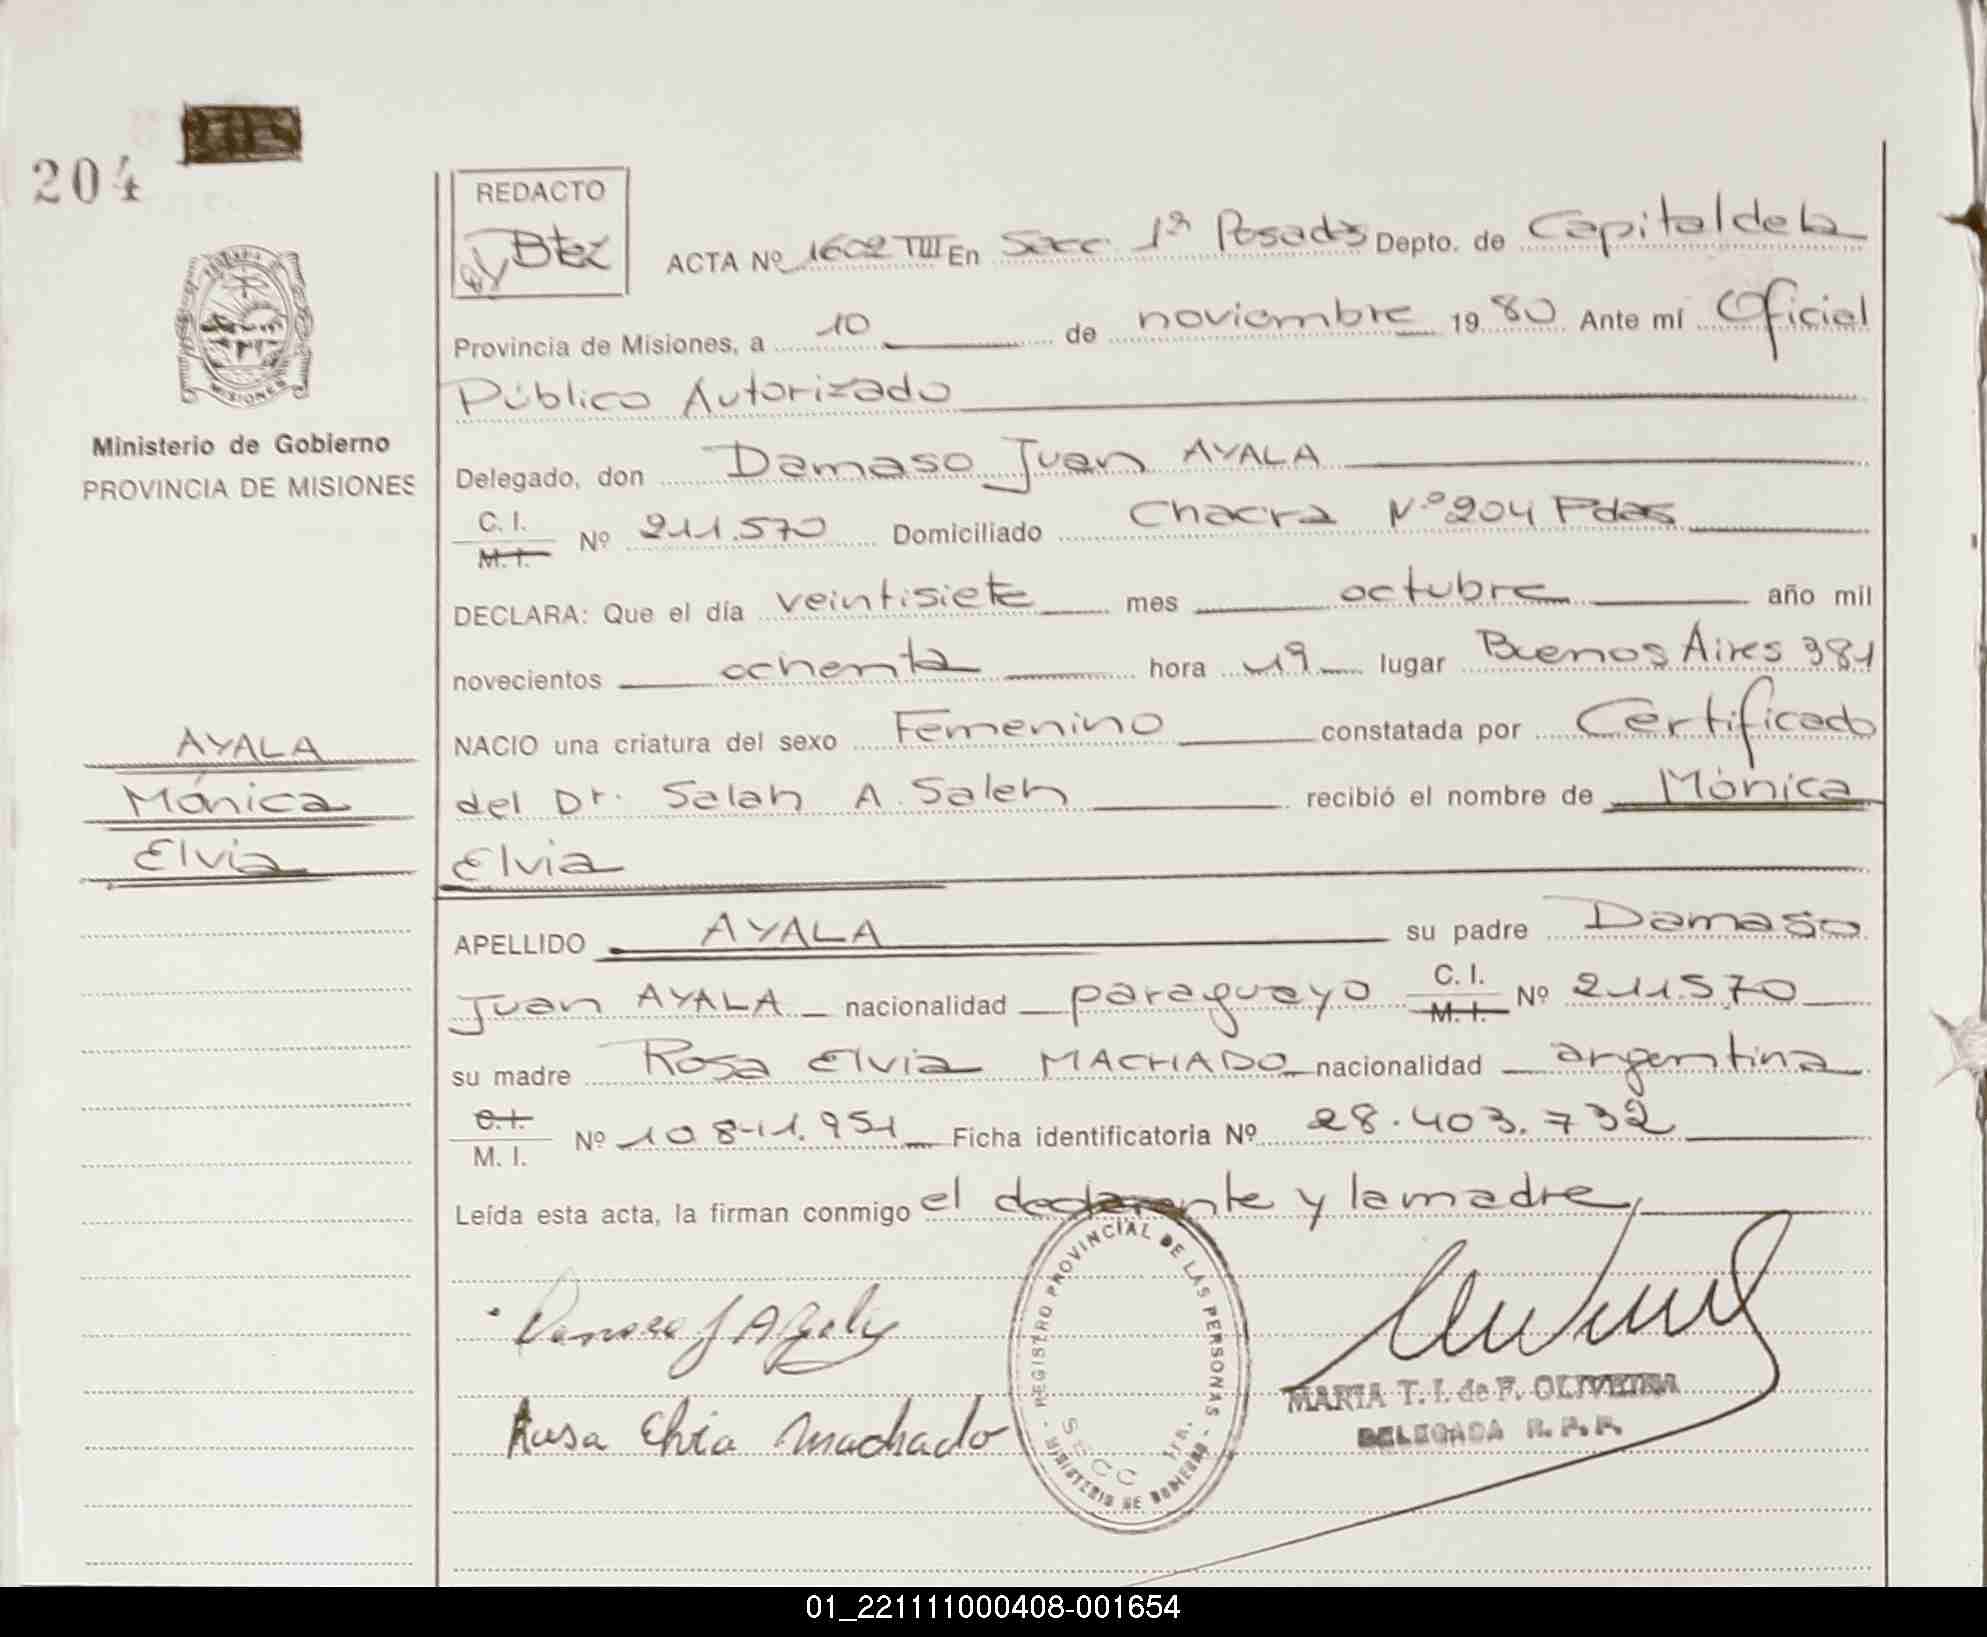 204
REDACTO
Btez
ACTA Nº 1602 TIII En Secc. 1ª Posadas Depto. de Capital de la
Provincia de Misiones, a 10 de noviembre 1980 Ante mí Oficial
Público Autorizado
MISIONES
Ministerio de Gobierno
PROVINCIA DE MISIONES
Delegado, don Damaso Juan AYALA
C. I.
M. I. Nº 211.570 Domiciliado Chacra Nº 204 Pdas
DECLARA: Que el día veintisiete mes octubre año mil
novecientos ochenta hora 19 lugar Buenos Aires 381
NACIO una criatura del sexo Femenino constatada por Certificado
del Dr. Salah A. Saleh recibió el nombre de Mónica
Elvia
AYALA
Mónica
Elvia
APELLIDO AYALA su padre Damaso
Juan AYALA nacionalidad paraguayo C. I. M. I. Nº 211.570
su madre Rosa Elvia MACHADO nacionalidad argentina
C. I.
M. I. Nº 10.811.951 Ficha identificatoria Nº 28.403.732
Leída esta acta, la firman conmigo el declarante y la madre,
Damaso J Ayala
Rosa Elvia Machado
REGISTRO PROVINCIAL DE LAS PERSONAS
SECC 1ra.
MINISTERIO DE GOBIERNO
MARIA T. I. de F. OLIVEIRA
DELEGADA R. P. P.
01_221111000408-001654